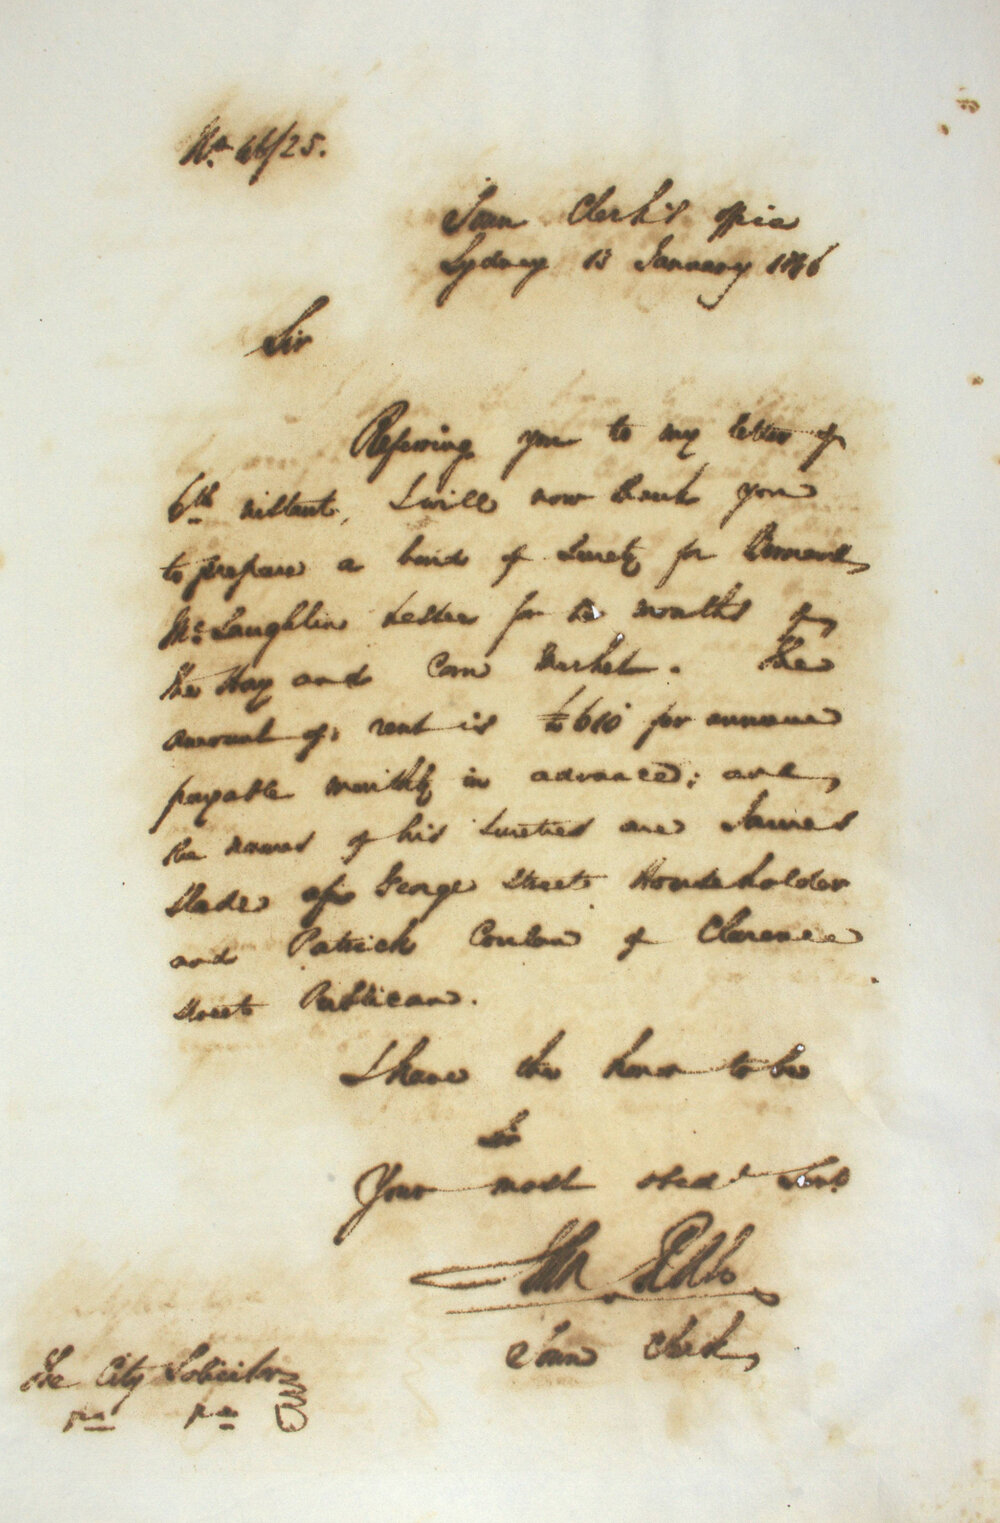 No. 46/25.
Town Clerk's Office
Sydney 13 January 1846
Sir
Referring you to my letter of
6th instant, I will now thank you
to prepare a bond of Surety for Bernard
McLaughlin Lessee for months of
the Hay and Corn Market. The
amount of rent is £610 per annum
payable monthly in advance; and
the names of his Sureties are James
Slade of George Street Householder
and Patrick Conlon of Clarence
Street Publican.
I have the honor to be
Sir
Your most obedt Servt
John
Town Clerk
The City Solicitor